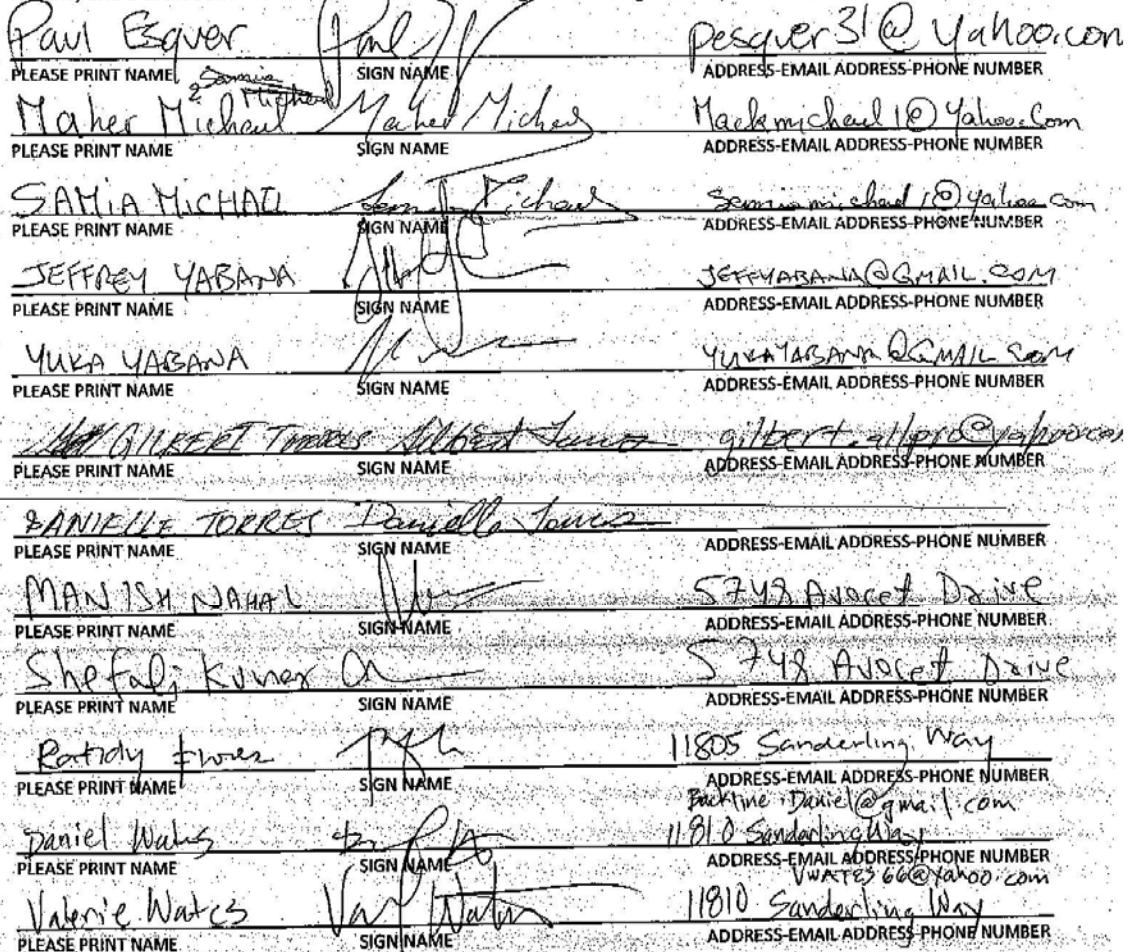 Paul Esquer pesquer31@yahoo.com
PLEASE PRINT NAME SIGN NAME ADDRESS-EMAIL ADDRESS-PHONE NUMBER
Maher Michael Maher Michael Mackmichael1@yahoo.Com
PLEASE PRINT NAME SIGN NAME ADDRESS-EMAIL ADDRESS-PHONE NUMBER
SAMIA MICHAIL Michael samiamichael1@yahoo.com
PLEASE PRINT NAME SIGN NAME ADDRESS-EMAIL ADDRESS-PHONE NUMBER
JEFFREY YABANA JEFFYABANA@GMAIL.COM
PLEASE PRINT NAME SIGN NAME ADDRESS-EMAIL ADDRESS-PHONE NUMBER
YUKA YABANA YUKAYABANA@GMAIL.COM
PLEASE PRINT NAME SIGN NAME ADDRESS-EMAIL ADDRESS-PHONE NUMBER
GILBERT TORRES Gilbert Torres gilbert.allpro@yahoo.com
PLEASE PRINT NAME SIGN NAME ADDRESS-EMAIL ADDRESS-PHONE NUMBER
DANIELLE TORRES Danielle Torres
PLEASE PRINT NAME SIGN NAME ADDRESS-EMAIL ADDRESS-PHONE NUMBER
MANISH NAHAL 5748 Avocet Drive
PLEASE PRINT NAME SIGN NAME ADDRESS-EMAIL ADDRESS-PHONE NUMBER
Shefali Kumar 5748 Avocet Drive
PLEASE PRINT NAME SIGN NAME ADDRESS-EMAIL ADDRESS-PHONE NUMBER
11805 Sanderling Way
PLEASE PRINT NAME SIGN NAME ADDRESS-EMAIL ADDRESS-PHONE NUMBER
Backline.Daniel@gmail.com
Daniel Wates 11810 Sanderling Way
PLEASE PRINT NAME SIGN NAME ADDRESS-EMAIL ADDRESS-PHONE NUMBER
VWATES66@yahoo.com
Valerie Wates 11810 Sanderling Way
PLEASE PRINT NAME SIGN NAME ADDRESS-EMAIL ADDRESS-PHONE NUMBER